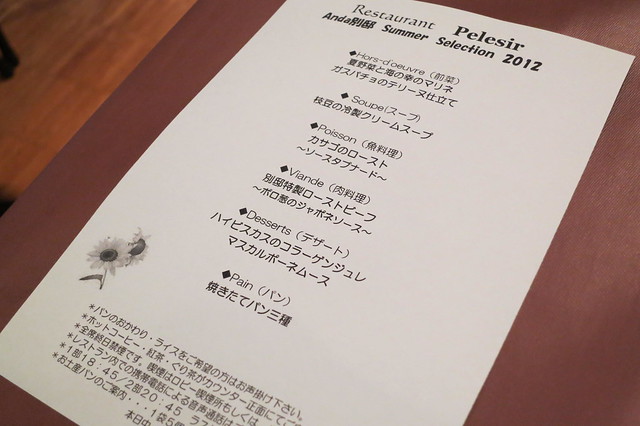 Restaurant Pelesir
Anda別邸 Summer Selection 2012
◆Hors-d'oeuvre（前菜）
夏野菜と海の幸のマリネ
ガスパチョのテリーヌ仕立て
◆ Soupe(スープ)
枝豆の冷製クリームスープ
◆Poisson（魚料理）
カサゴのロースト
～ソースタプナード～
◆Viande（肉料理）
別邸特製ローストビーフ
～ポロ葱のジャポネソース～
◆Desserts（デザート）
ハイビスカスのコラーゲンジュレ
マスカルポーネムース
◆Pain（パン）
焼きたてパン三種
*パンのおかわり・ライスをご希望の方はお声掛け下さい。
*ホットコーヒー・紅茶・ぐり茶がカウンター正面にてご
*全席終日禁煙です。喫煙はロビー喫煙所もしくは
*レストラン内での携帯電話による音声通話はご
*1部18：45／2部20：45 ラス
*お土産パンのご案内・・・1袋5個
本日中